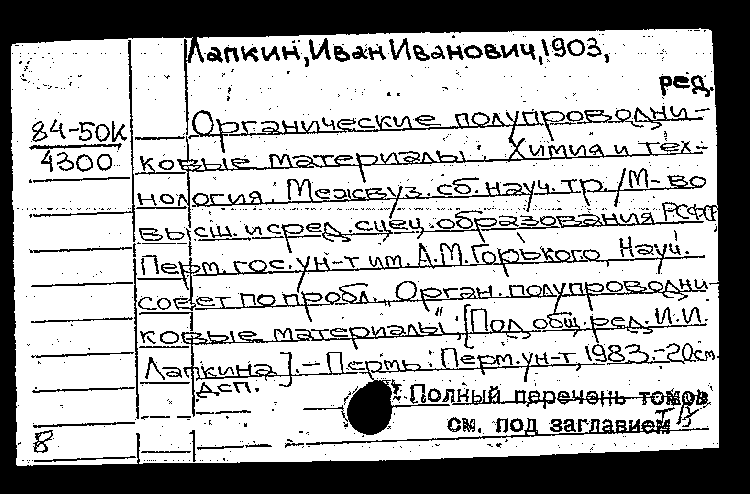 Лапкин, Иван Иванович, 1903,
ред.
84-50К
4300
Органические полупроводни-
ковые материалы: Химия и тех-
нология: Межвуз. сб. науч. тр. /М-во
высш. и сред. спец. образования РСФСР,
Перм. гос. ун-т им. А.М.Горького, Науч.
совет по пробл. „Орган. полупроводни-
ковые материалы"; [Под общ. ред. И.И.
Лапкина]. - Пермь: Перм. ун-т, 1983. - 20см.
ДСП.
Полный перечень томов
см. под заглавием
8